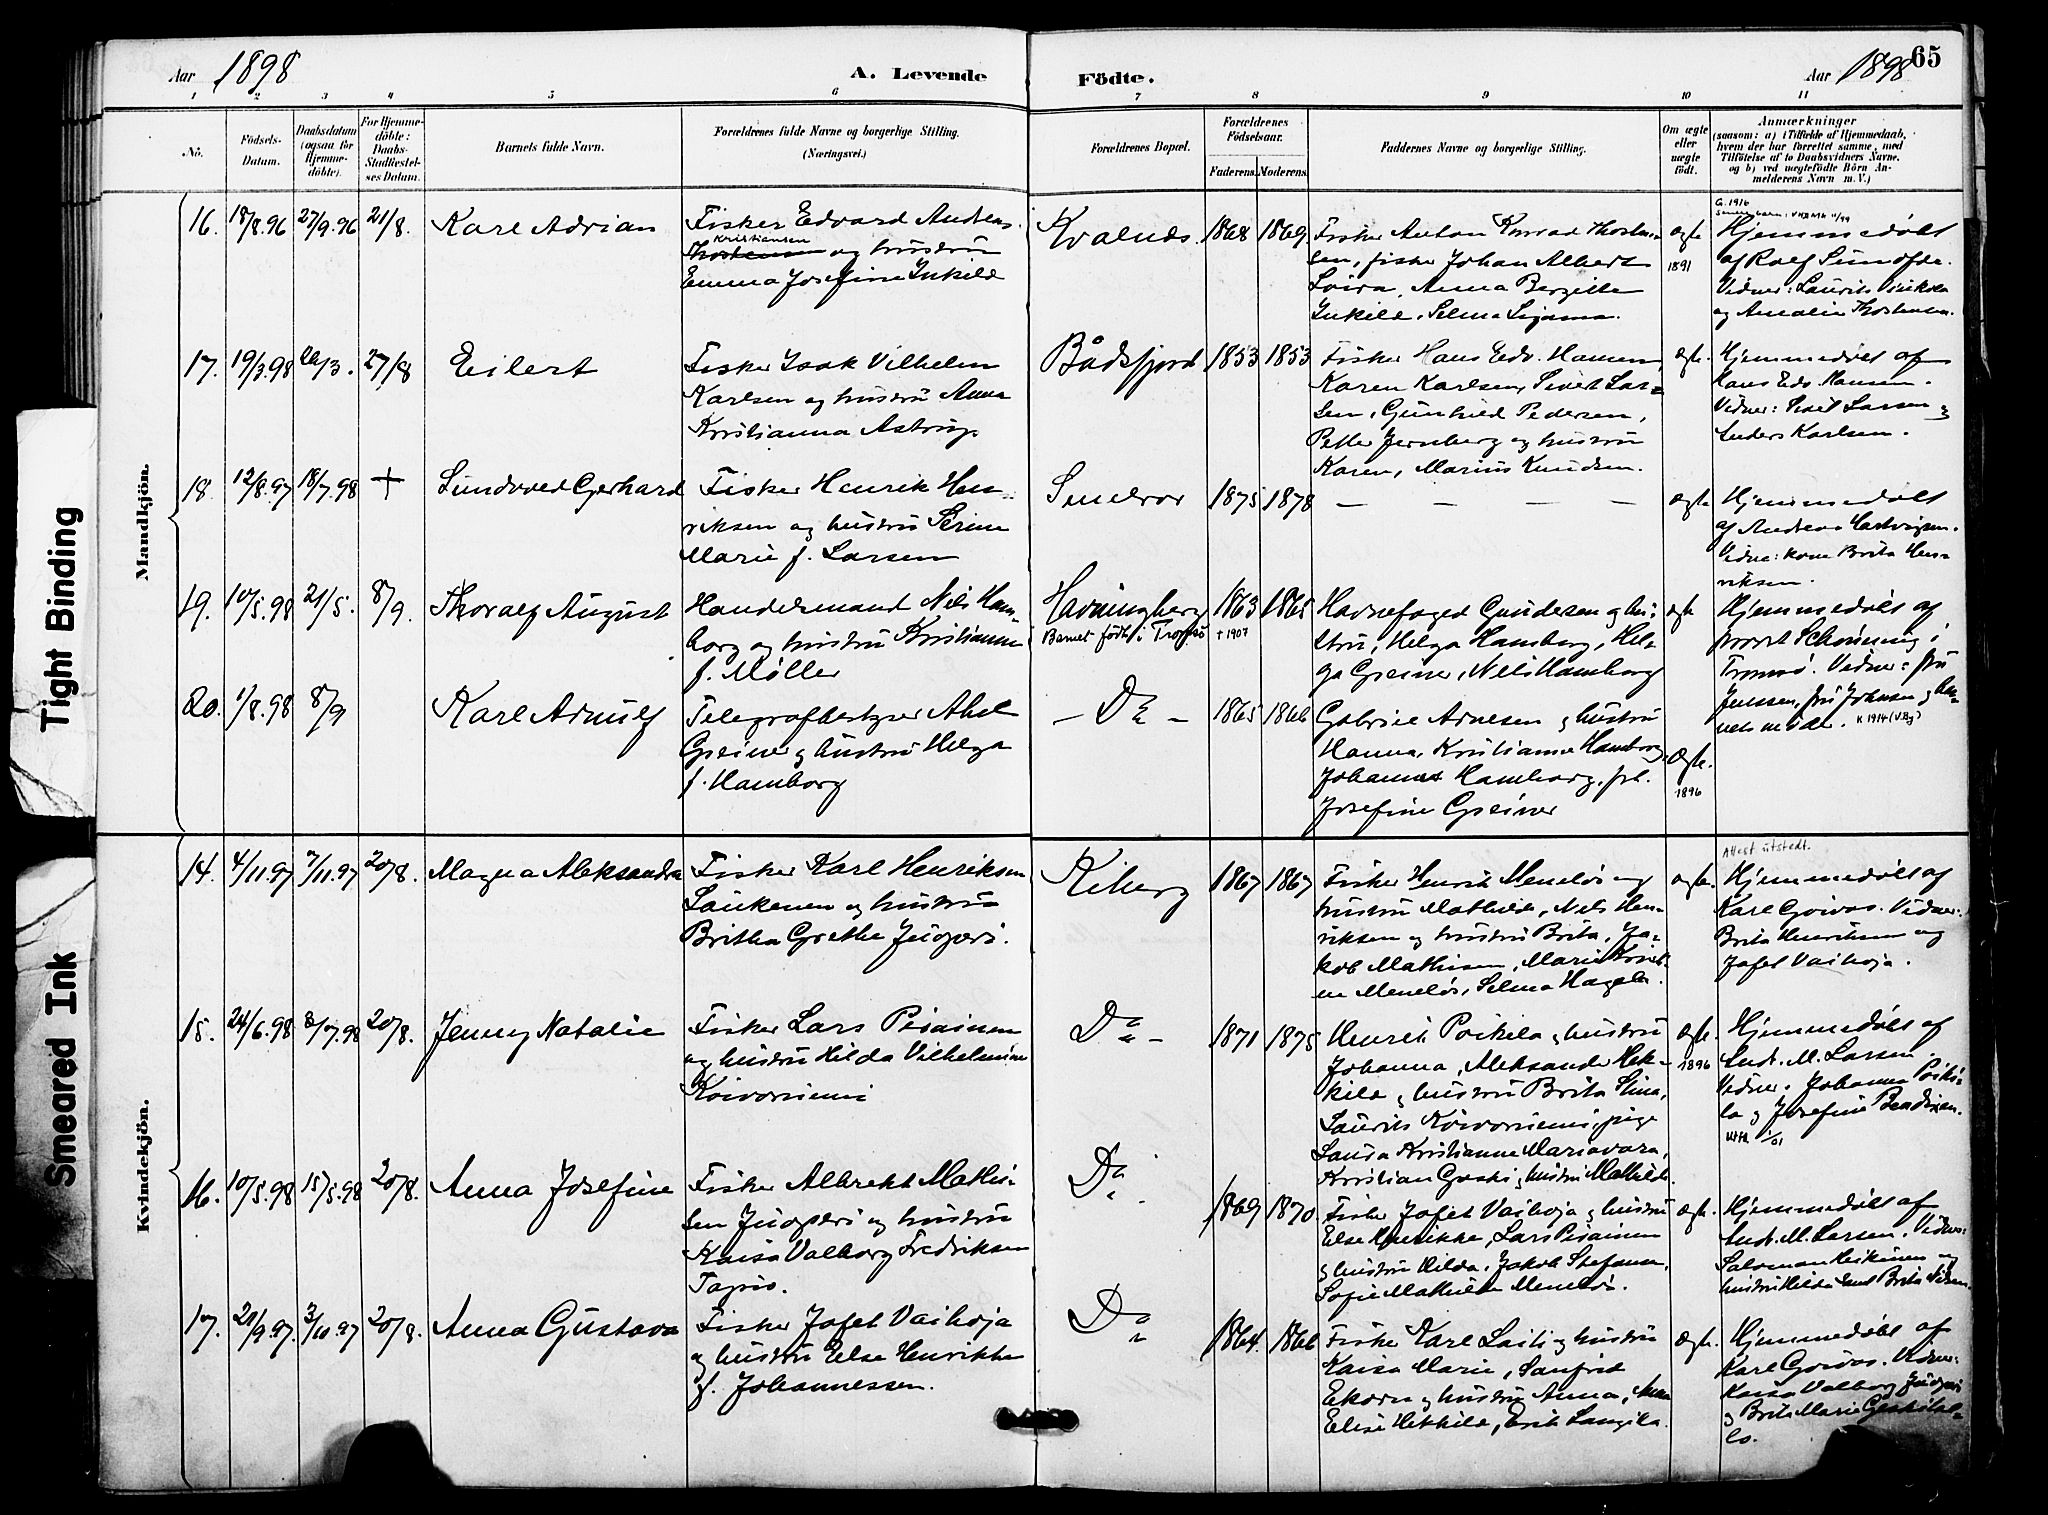 Tight Binding
Smeared Ink
Aar 1898
A. Levende
Födte.
Aar 1898
65
1 2 3 4 5 6 7 8 9 10 11
No.
Födsels-
Datum.
Daabsdatum
(ogsaa for
Hjemme-
döbte).
For Hjemme-
döbte:
Daabs-
Stadfæstel-
ses Datum.
Barnets fulde Navn.
Forældrenes fulde Navne og borgerlige Stilling.
(Næringsvei.)
Forældrenes Bopæl.
Forældrenes
Födselsaar.
Faderens. Moderens.
Faddernes Navne og borgerlige Stilling.
Om ægte
eller
uægte
födt.
Anmærkninger
(saasom: a) i Tilfælde af Hjemmedaab,
hvem der har forrettet samme, med
Tilföielse af to Daabsvidners Navne.
og b) ved uægtefödte Börn An-
melderens Navn m. V.)
Mandkjön.
16. 18/8.96 27/9.96 21/8. Karl Adrian
Fisker Edvard Andreas
Kristiansen
Thostensen og hustru
Emma Josefine Inkilä
Kvalnes 1868 1869
Fisker Anton Konrad Thosten-
sen, fisker Johan Albert
Anna Bergitte
Inkilä, Selma
ægte
1891
G. 1916
Hjemmedøbt
af Rolf
Vidner: Laurits
og Amalie Thostensen.
17. 19/3.98 /3. 27/8 Eilert
Fisker Isak Vilhelm
Karlsen og hustru Anna
Kristianna Astrup.
Bådsfjord 1853 1853
Fisker Hans Edv. Hansen,
Karen Karlsen, Sivert Lar-
sen, Gunhild Pedersen,
Petter Jernberg og hustru
Karen, Marius Knudsen.
ægte.
Hjemmedøbt af
Hans Edv. Hansen.
Vidner: Sivert Larsen og
Anders Karlsen.
18. 12/8.97 18/7.98 + Sundvved Gerhard
Fisker Henrik Hen-
riksen og hustru Serine
Marie f. Larsen
Smelror 1875 1878 — — — —
ægte
Hjemmedøbt
af Andreas Hartvigsen.
Vidne: kone Brita Hen-
riksen.
19. 10/5.98 21/5. 8/9. Thoralf August
Handelsmand Nils Ham-
borg og hustru Kristianne
f. Møller
Havningberg
Barnet født i Tromsø
1863
+ 1907
1865
Havnefoged Gundersen og hu-
stru, Helga Hamborg, Hel-
ga Greiner, Nils Hamborg
ægte
Hjemmedøbt af
provst Schønning i
Tromsø. Vidner: fru
Jenssen, fru Johnsen og Bar-
nets moder.
K 1914 (V.By)
20. 1/8.98 8/9 Karl Arnulf
Telegrafbestyrer Abel
Greiner og hustru Helga
f. Hamborg
— Do — 1865 1866
Gabriel Arnesen og hustru
Hanna, Kristianne Hamborg,
Johannes Hamborg, frk.
Josefine Greiner
Ægte.
1896
Kvindekjön.
14. 4/11.97 7/11.97 20/8. Magna Aleksandra
Fisker Karl Henriksen
Laukenen og hustru
Britha Grethe Juoperi.
Kiberg 1867 1867
Fisker Henrik Meneløs og
hustru Mathilde, Nils Hen-
riksen og hustru Brita, Ja-
kob Mathisen, Marie Krist-
ine Meneløs, Selma Hagela.
ægte.
Attest utstedt.
Hjemmedøbt af
Karl Goivas. Vidner:
Brita Henriksen og
Jafet Vaihoja.
15. 24/6.98 8/7.98 20/8. Jenny Natalie
Fisker Lars Pisainen
og hustru Hilda Vilhelmine
Koivoniemi
Do — 1871 1875
Henrik Poikela og hustru
Johanna, Aleksander Hek-
kilä og hustru Brita Stina,
Laurits Koivoniemi, pige
Laura Kristianne Mariavara,
Kristian Goski og hustru Mathilde.
Ægte.
1896
Hjemmedøbt af
And. M. Larsen.
Vidner: Johanna Poike-
la og Josefine Bendixen.
16. 10/5.98 15/5.98 20/8. Anna Josefine
Fisker Albrekt Mathi-
sen Juoperi og hustru
Kaisa Valborg Fredriksen
Tapio.
Do 1869 1870
Fisker Jafet Vaihoja og hustru
Else Henrikke, Lars Pisainen
og hustru Hilda, Jakob Stefansen,
Sofie Mathilde Meneløs.
Ægte.
Hjemmedøbt af
And. M. Larsen. Vidner:
Salomon Heikinen og
hustru Hilda samt Brita Nilsen.
17. 20/9.97. 3/10.97 20/8. Anna Gustava
Fisker Jafet Vaihoja
og hustru Else Henrikke
f. Johannessen.
Do 1864. 1866
Fisker Karl Laiti og hustru
Kaisa Marie, Sanfrid
Ekorn og hustru Anna, Anna
Elise Hekkilä, Erik Langila.
Ægte.
Hjemmedøbt af
Karl Goivas. Vidner:
Kaisa Valborg Juoperi
og Brita Marie
lo.